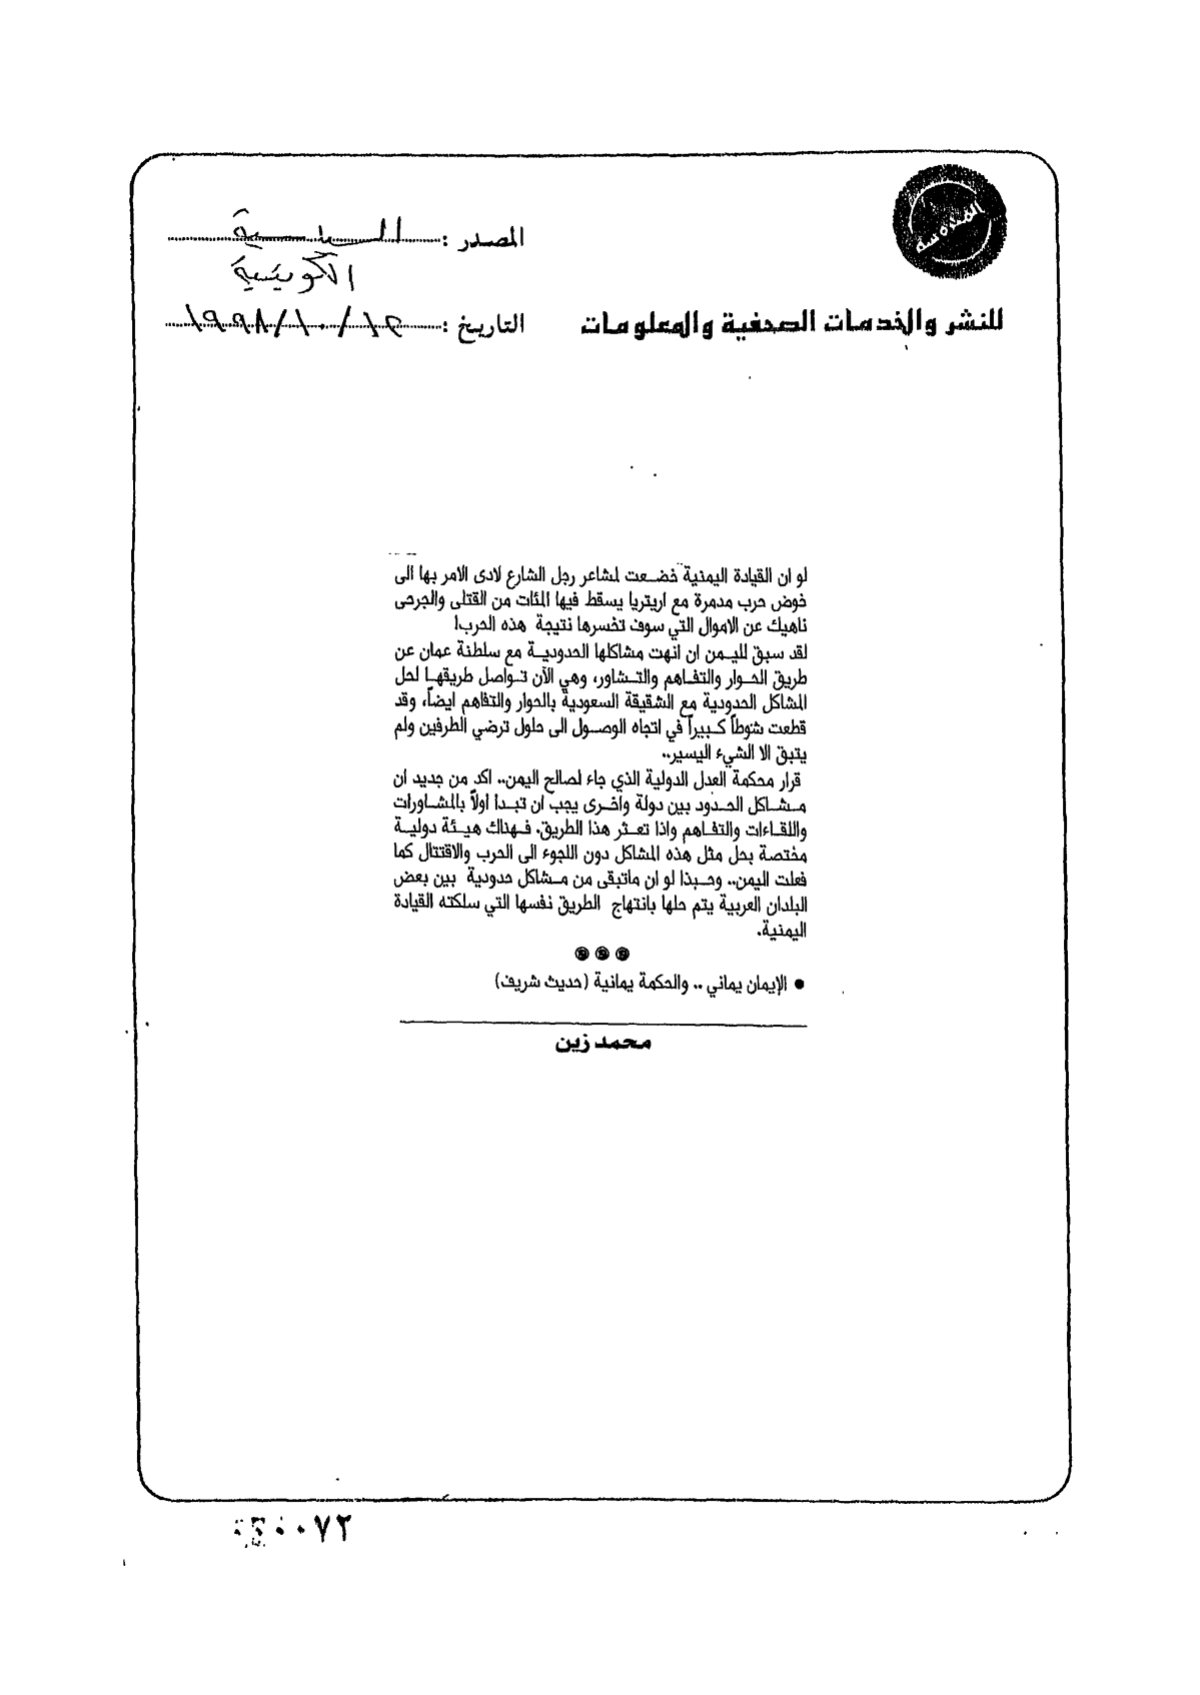 المحروسة
المصدر : السياسية
الكويتية
للنشر والخدمات الصحفية والمعلومات
التاريخ : ١٩٩٨/١٠/١٤
لو ان القيادة اليمنية خضعت لمشاعر رجل الشارع لادى الامر بها الى
خوض حرب مدمرة مع اريتريا يسقط فيها المئات من القتلى والجرحى
ناهيك عن الاموال التي سوف تخسرها نتيجة هذه الحرب!
لقد سبق لليمن ان انهت مشاكلها الحدودية مع سلطنة عمان عن
طريق الحوار والتفاهم والتشاور، وهي الآن تواصل طريقها لحل
المشاكل الحدودية مع الشقيقة السعودية بالحوار والتفاهم ايضاً، وقد
قطعت شوطاً كبيراً في اتجاه الوصول الى حلول ترضي الطرفين ولم
يتبق الا الشيء اليسير..
قرار محكمة العدل الدولية الذي جاء لصالح اليمن.. اكد من جديد ان
مشاكل الحدود بين دولة واخرى يجب ان تبدا اولاً بالمشاورات
واللقاءات والتفاهم واذا تعثر هذا الطريق. فهناك هيئة دولية
مختصة بحل مثل هذه المشاكل دون اللجوء الى الحرب والاقتتال كما
فعلت اليمن.. وحبذا لو ان ماتبقى من مشاكل حدودية بين بعض
البلدان العربية يتم حلها بانتهاج الطريق نفسها التي سلكته القيادة
اليمنية.
● الإيمان يماني .. والحكمة يمانية (حديث شريف)
محمد زين